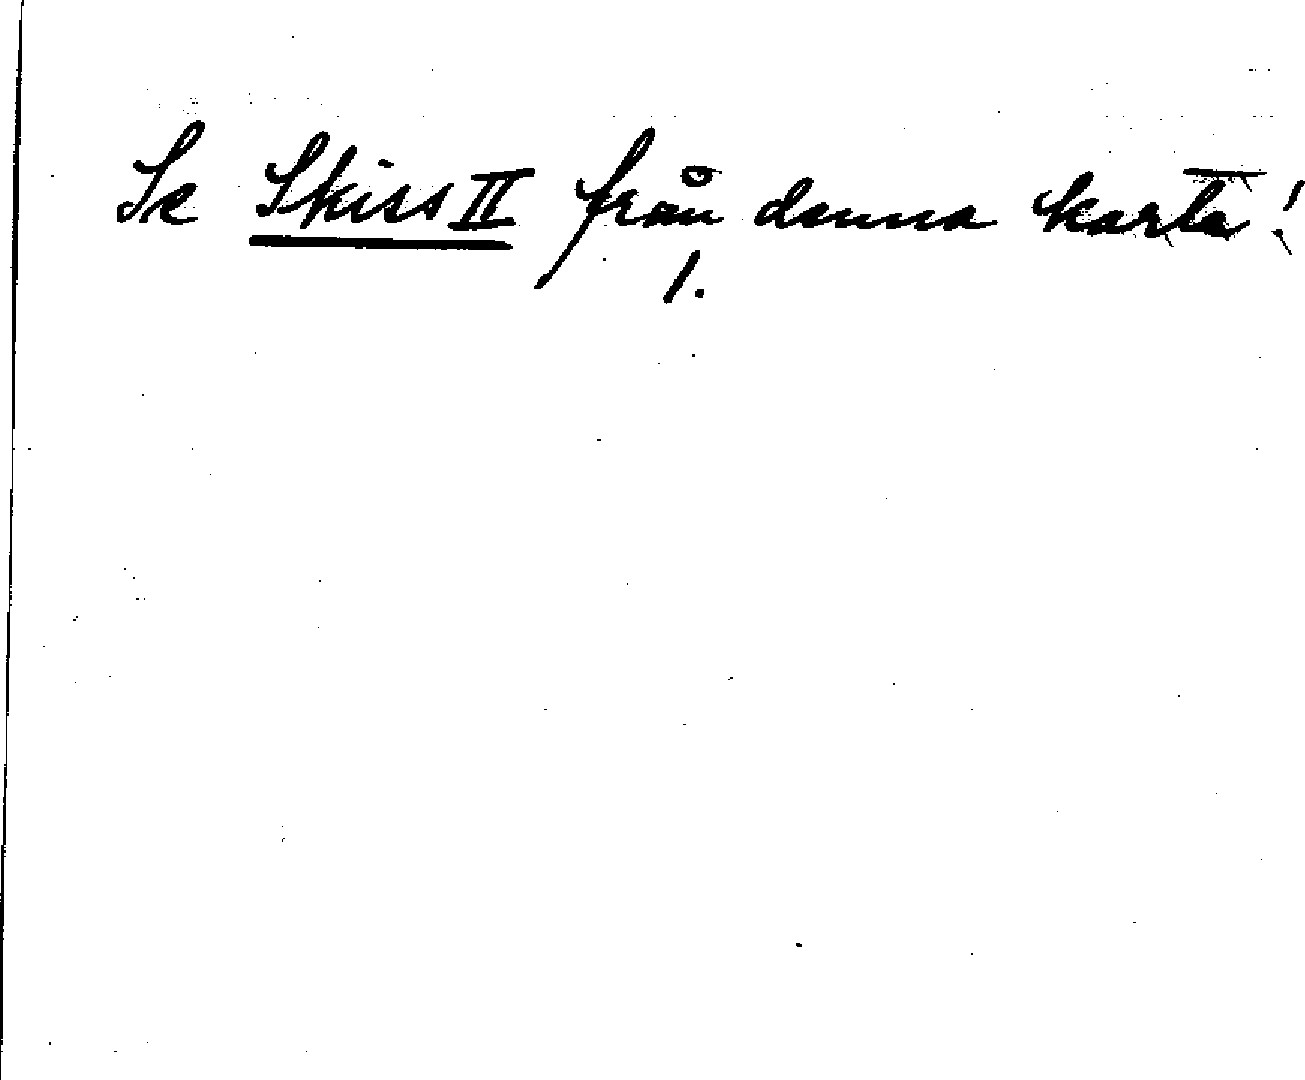 Se Skiss II från denna karta!
1.